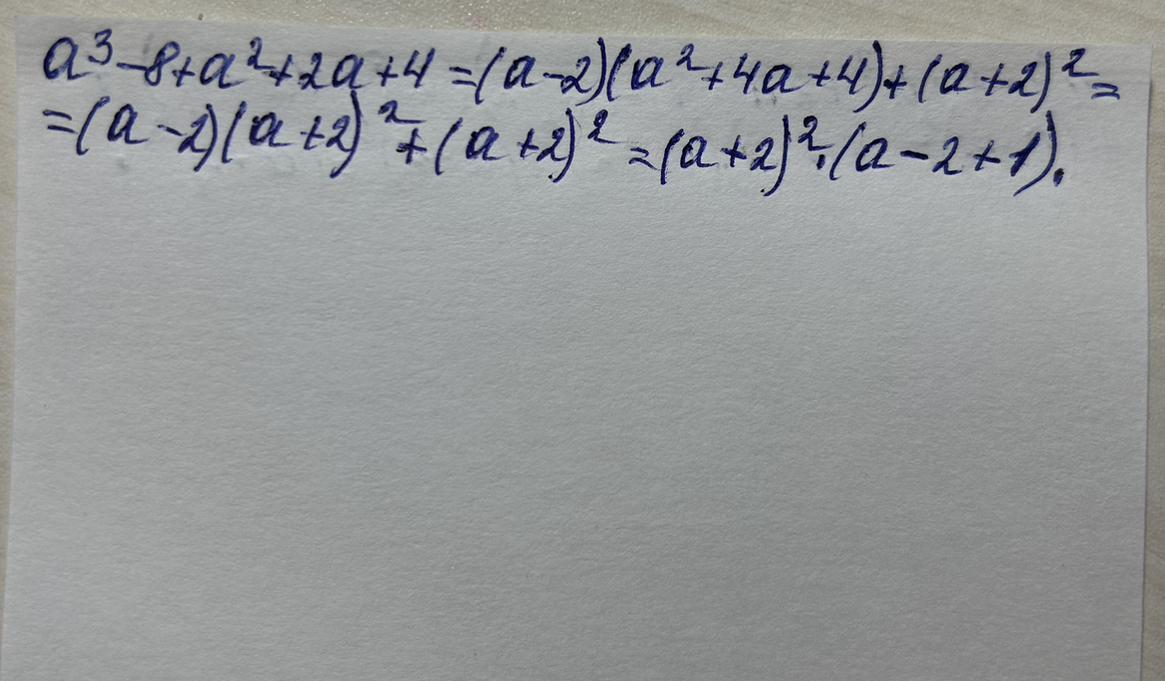 a³-8+a²+2a+4=(a-2)(a²+4a+4)+(a+2)²=
=(a-2)(a+2)²+(a+2)²=(a+2)²·(a-2+1).